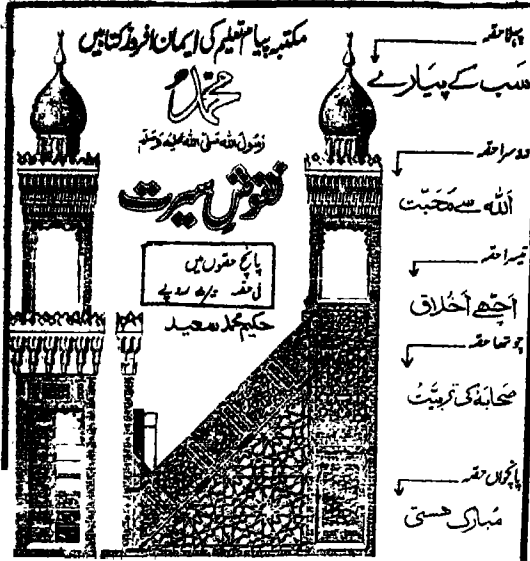 مکتبہ پیام تعلیم کی ایمان افروز کتابیں
محمدؐ
رَسُولَ اللہ صَلَّی اللہ عَلَیْہِ وَسَلَّم
نقوشِ سیرت
پانچ حصّوں میں
فی حصّہ =/۵ روپے
حکیم محمد سعید
پہلا حصّہ
سَب کے پیارے
دوسرا حصّہ
اَللہ سے مَحَبَّت
تیسرا حصّہ
اَچھّے اَخْلاق
چوتھا حصّہ
صَحَابَہ کی تَربِیَّت
پانچواں حصّہ
مُبارک ہستی